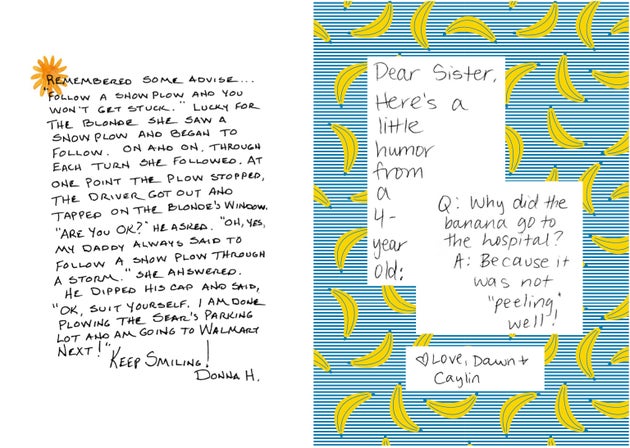 REMEMBERED SOME ADVISE...
"FOLLOW A SNOW PLOW AND YOU
WON'T GET STUCK." LUCKY FOR
THE BLONDE SHE SAW A
SNOW PLOW AND BEGAN TO
FOLLOW. ON AND ON, THROUGH
EACH TURN SHE FOLLOWED. AT
ONE POINT THE PLOW STOPPED,
THE DRIVER GOT OUT AND
TAPPED ON THE BLONDE'S WINDOW.
"ARE YOU OK?" HE ASKED. "OH, YES,
MY DADDY ALWAYS SAID TO
FOLLOW A SNOW PLOW THROUGH
A STORM." SHE ANSWERED.
HE DIPPED HIS CAP AND SAID,
"OK, SUIT YOURSELF. I AM DONE
PLOWING THE SEAR'S PARKING
LOT AND AM GOING TO WALMART
NEXT!"
KEEP SMILING!
DONNA H.
Dear Sister,
Here's a
little
humor
from
a
4-
year
old:
Q: Why did the
banana go to
the hospital?
A: Because it
was not
"peeling"
well!
♡ Love, Dawn +
Caylin